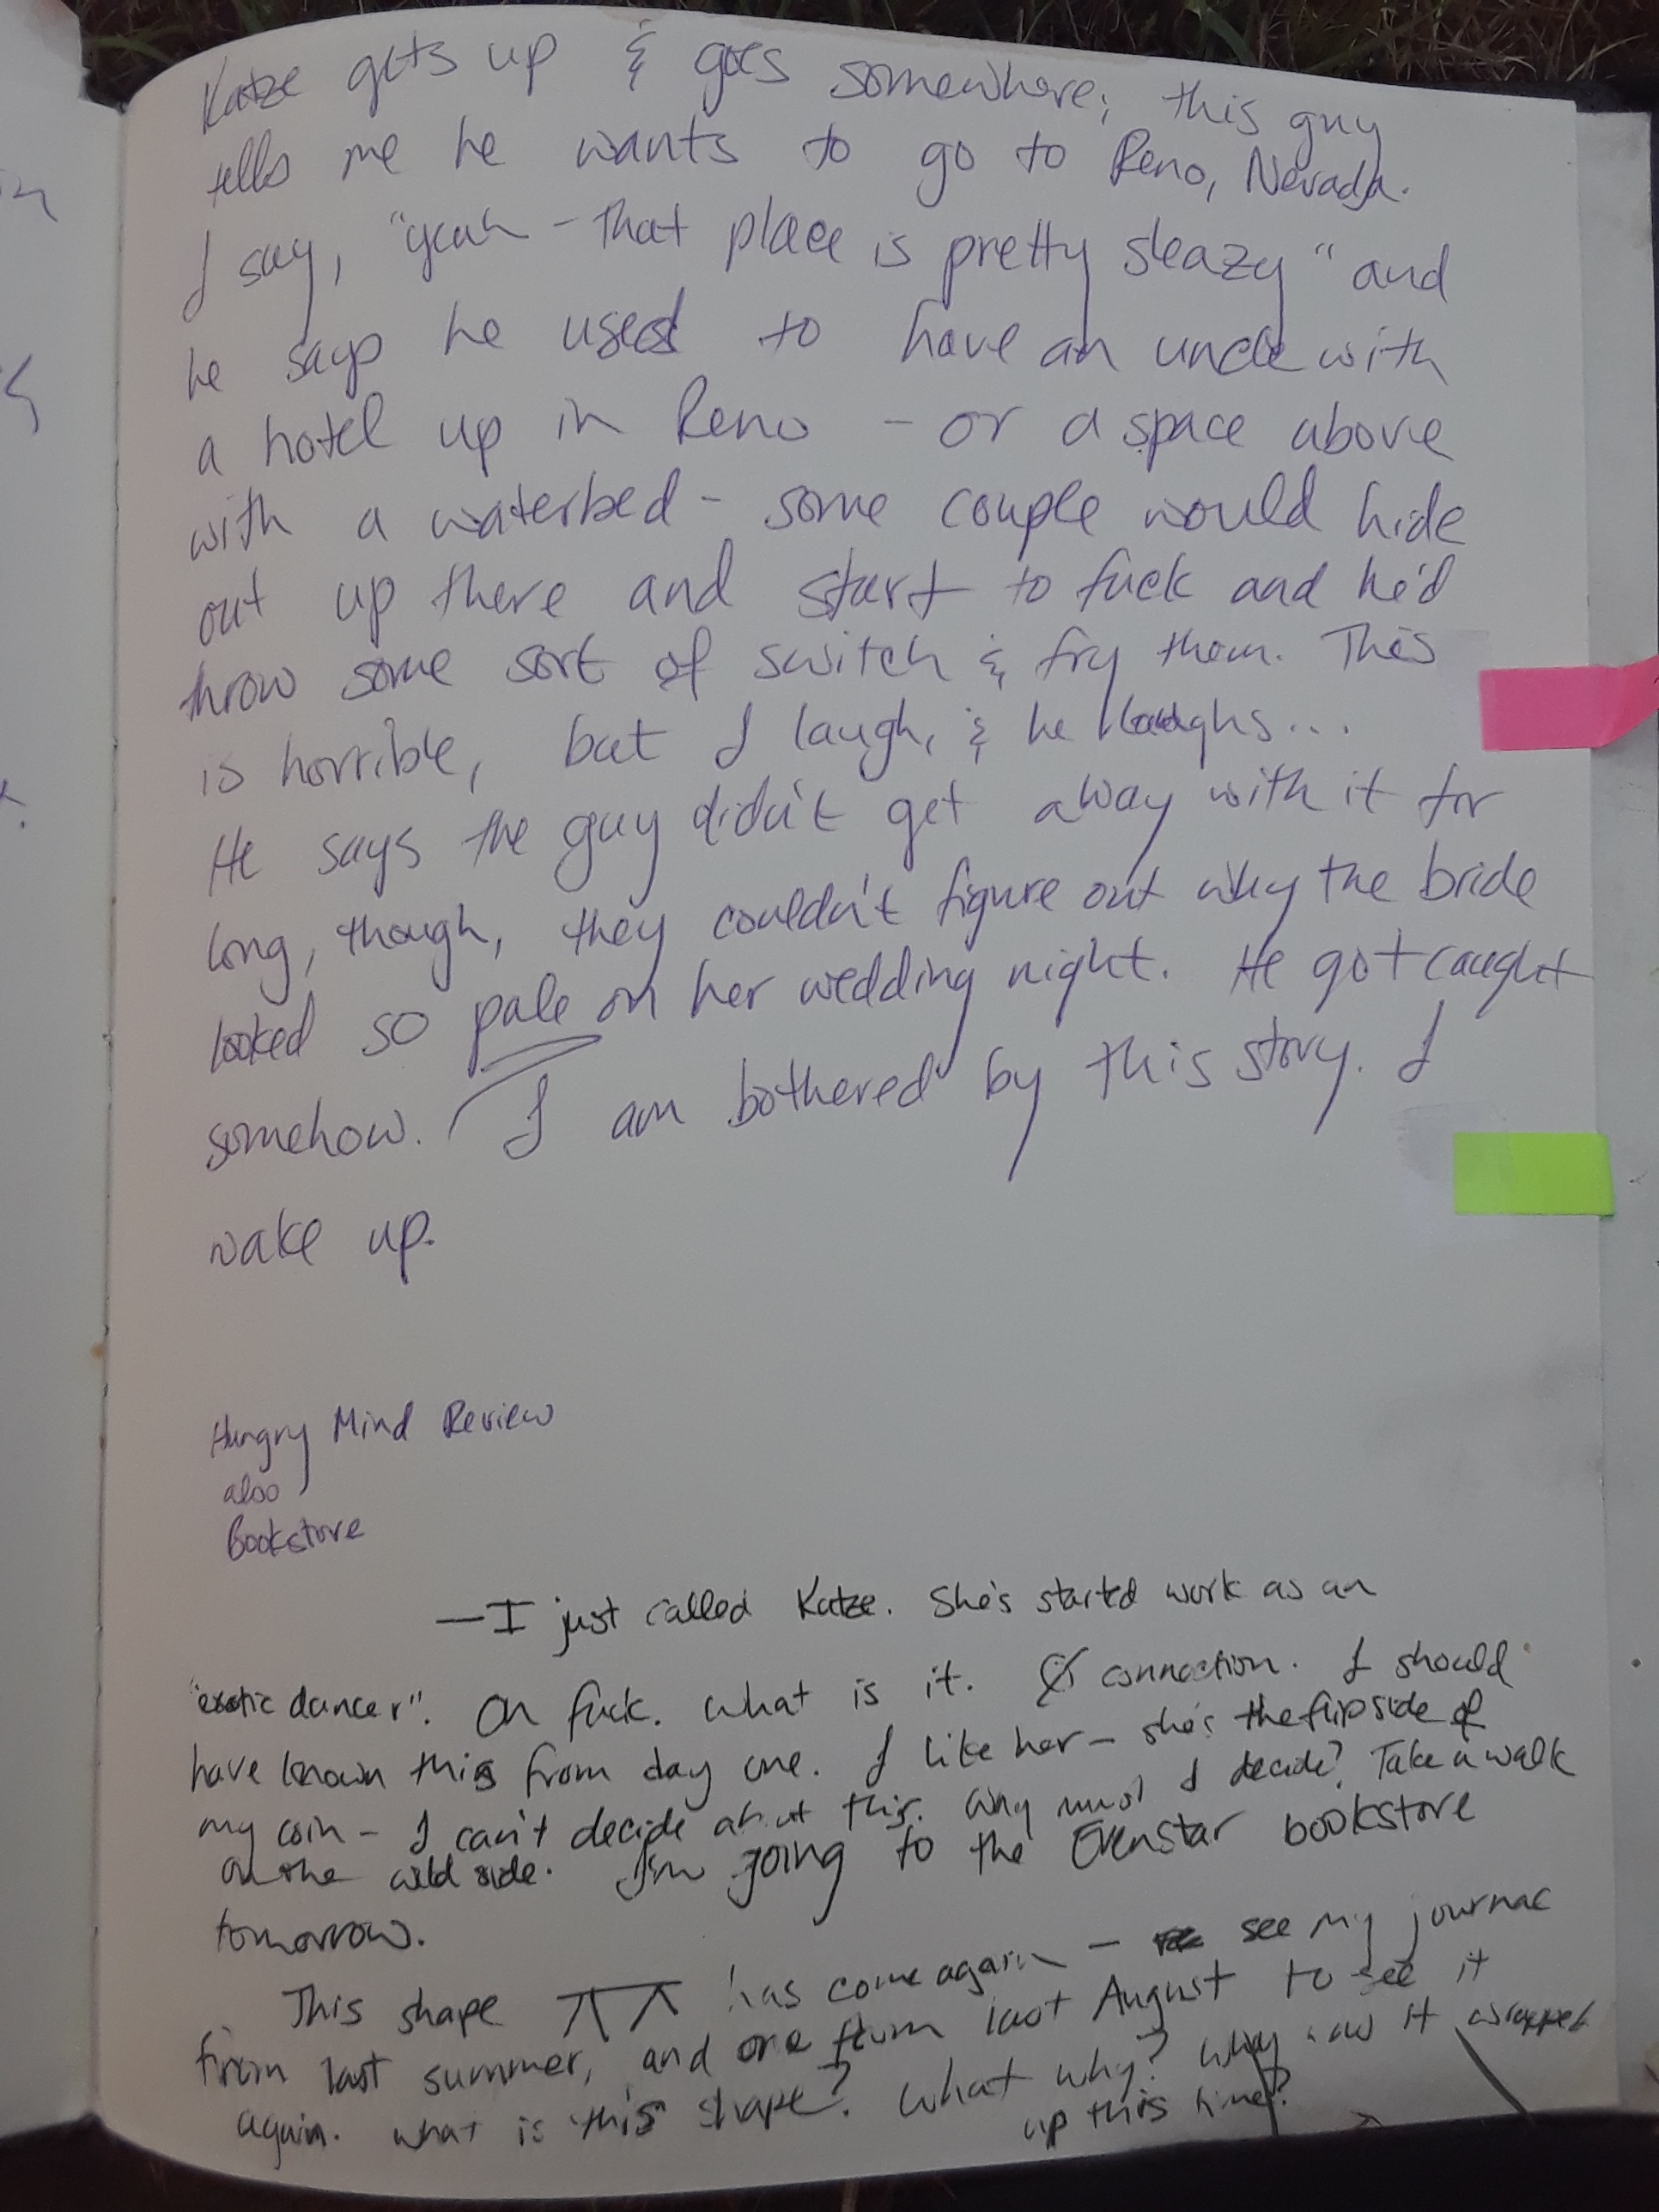 Katze gets up & goes somewhere; this guy
tells me he wants to go to Reno, Nevada.
I say, "yeah - that place is pretty sleazy" and
he says he used to have an uncle with
a hotel up in Reno - or a space above
with a waterbed - some couple would hide
out up there and start to fuck and he'd
throw some sort of switch & fry them. This
is horrible, but I laugh, & he laughs...
He says the guy didn't get away with it for
long, though, they couldn't figure out why the bride
looked so pale on her wedding night. He got caught
somehow. I am bothered by this story. I
wake up.
Hungry Mind Review
also
Bookstore
—I just called Katze. She's started work as an
"exotic dancer". Oh fuck. What is it. connection. I should
have known this from day one. I like her - she's the flipside of
my coin - I can't decide about this. Why must I decide? Take a walk
on the wild side. I'm going to the Evenstar bookstore
tomorrow.
This shape has come again - see my journal
from last summer, and one from last August to see it
again. What is this shape? What why? Why was it wrapped
up this time?